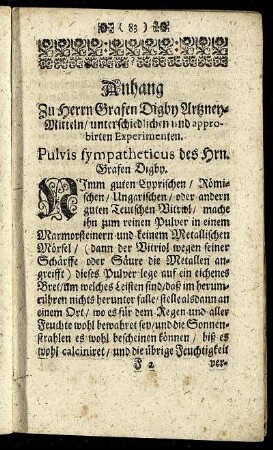 ( 83 )
Anhang
Zu Herrn Grafen Digby Artzney-
Mitteln/ unterschiedlichen und appro-
birten Experimenten.
Pulvis sympatheticus des Hrn.
Grafen Digby.
NImm guten Cyprischen/ Römi-
schen/ Ungarischen/ oder andern
guten Teutschen Vitriol/ mache
ihn zum reinen Pulver in einem
Marmorsteinern und keinem Metallischen
Mörsel/ (dann der Vitriol wegen seiner
Schärffe oder Säure die Metallen an-
greifft) dieses Pulver lege auf ein eichenes
Bret/ um welches Leisten sind/ daß im herum-
rühren nichts herunter falle/ stelle alsdann an
einem Ort/ wo es für dem Regen und aller
Feuchte wohl bewahret sey/ und die Sonnen-
strahlen es wohl bescheinen können/ biß es
wohl calciniret/ und die übrige Feuchtigkeit
F 2 ver-